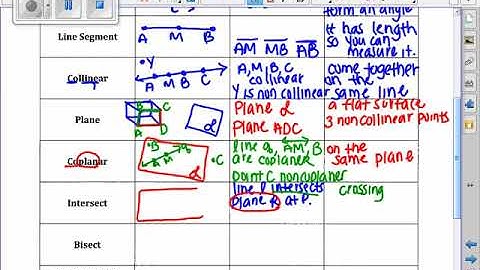 form an angle
Line Segment
A M B
AM MB AB
it has length
so you can
measure it.
Collinear
Y
A M B C
A, M, B, C
collinear
Y is non collinear
come together
on the
same line
Plane
B C
A D
α
Plane α
Plane ADC
a flat surface
3 noncollinear points
Coplanar
B
A M
C
α
line q, AM, B
are coplanar
point C noncoplaner
on the
same plane
Intersect
line l intersects
plane R at P.
crossing
Bisect